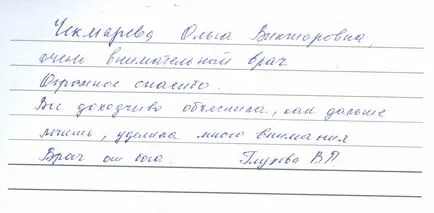 Чекмарева Ольга Викторовна,
очень внимательный врач
Огромное спасибо.
Все доходчиво объяснила, как дальше
лечить, уделила много внимания
Врач от бога. Глухова В.П